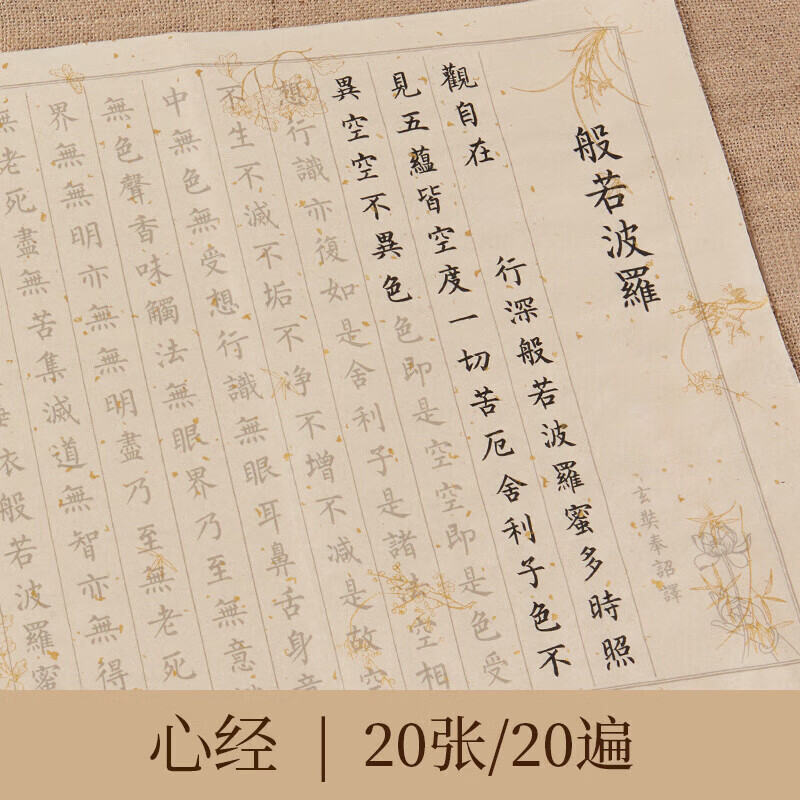 般若波羅
玄奘奉詔譯
觀自在 行深般若波羅蜜多時照
見五蘊皆空度一切苦厄舍利子色不
異空空不異色色即是空空即是色受
想行識亦復如是舍利子是諸法空相
不生不滅不垢不净不增不減是故空
中無色無受想行識無眼耳鼻舌身意
無色聲香味觸法無眼界乃至無意
界無無明亦無無明盡乃至無老死
無老死盡無苦集滅道無智亦無得
般若波羅蜜
心经 | 20张/20遍